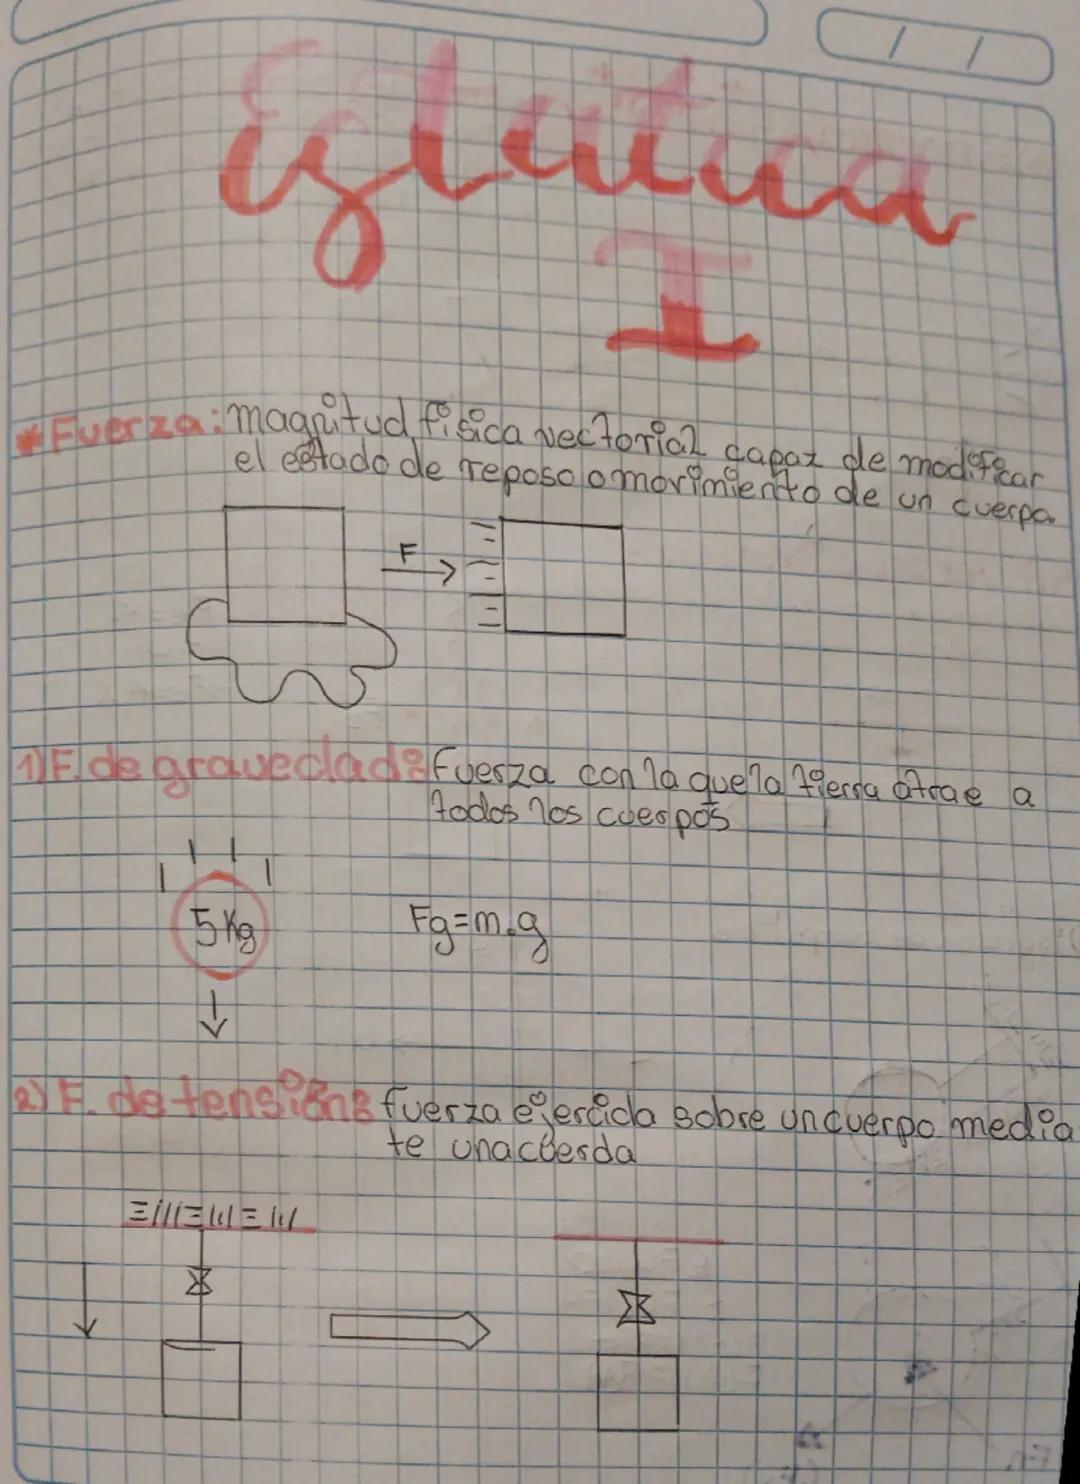 Estatica
I
* Fuerza: magnitud física vectorial capaz de modificar
el estado de reposo o movimiento de un cuerpo.
F
1) F. de gravedad: fuerza con la que la tierra atrae a
todos los cuerpos
5 Kg
Fg=m.g
2) F. de tensión: fuerza ejercida sobre un cuerpo media
te una cuerda